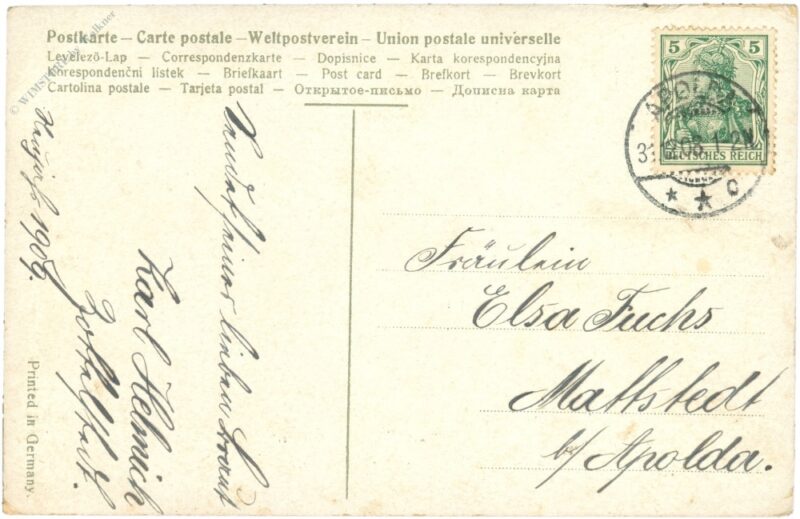 Postkarte – Carte postale – Weltpostverein – Union postale universelle
Levelező-Lap — Correspondenzkarte — Dopisnice — Karta korespondencyjna
Korespondenční lístek — Briefkaart — Post card — Brefkort — Brevkort
Cartolina postale — Tarjeta postal — Открытое-письмо — Дописна карта
5 5
DEUTSCHES REICH
APOLDA
31.12.08. 1-2N.
* ★ c
Fräulein
Elsa Fuchs
Mattstedt
b/ Apolda.
seiner lieben Braut
Karl Helmich
Neujahr 1909.
Printed in Germany.
© WIMSTORE by Falkner